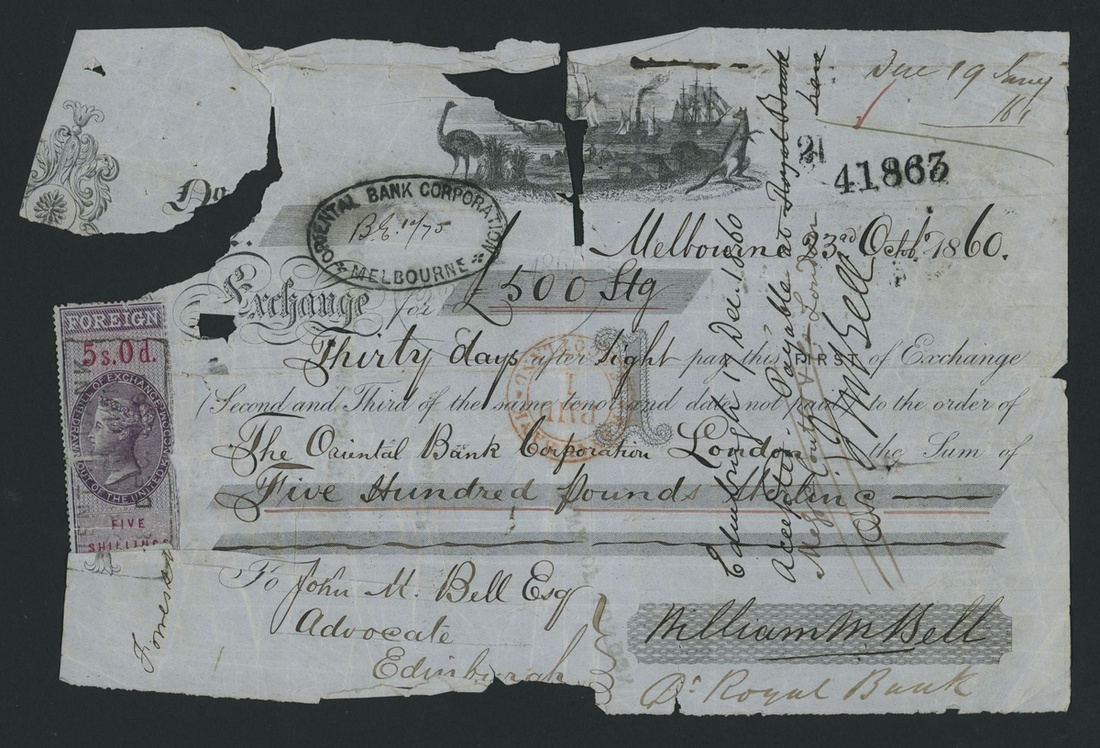 Due 19 Jany
/61
21
41863
No
ORIENTAL BANK CORPORATION
B.E. 12/75
MELBOURNE
Melbourne 23rd Octobr 1860.
Exchange for £500 Stg
FOREIGN
5s.0d.
BILL OF EXCHANGE
OUT OF THE UNITED KINGDOM
FIVE
SHILLINGS
Thirty days after Sight pay this FIRST of Exchange
(Second and Third of the same tenor and date not paid) to the order of
The Oriental Bank Corporation London the Sum of
Five Hundred pounds Sterling
To John M. Bell Esq
Advocate
Edinburgh
William M Bell
Dr. Royal Bank
Edinburgh 17 Dec. 1860
Accepted Payable at Royal Bank
London
J M Bell